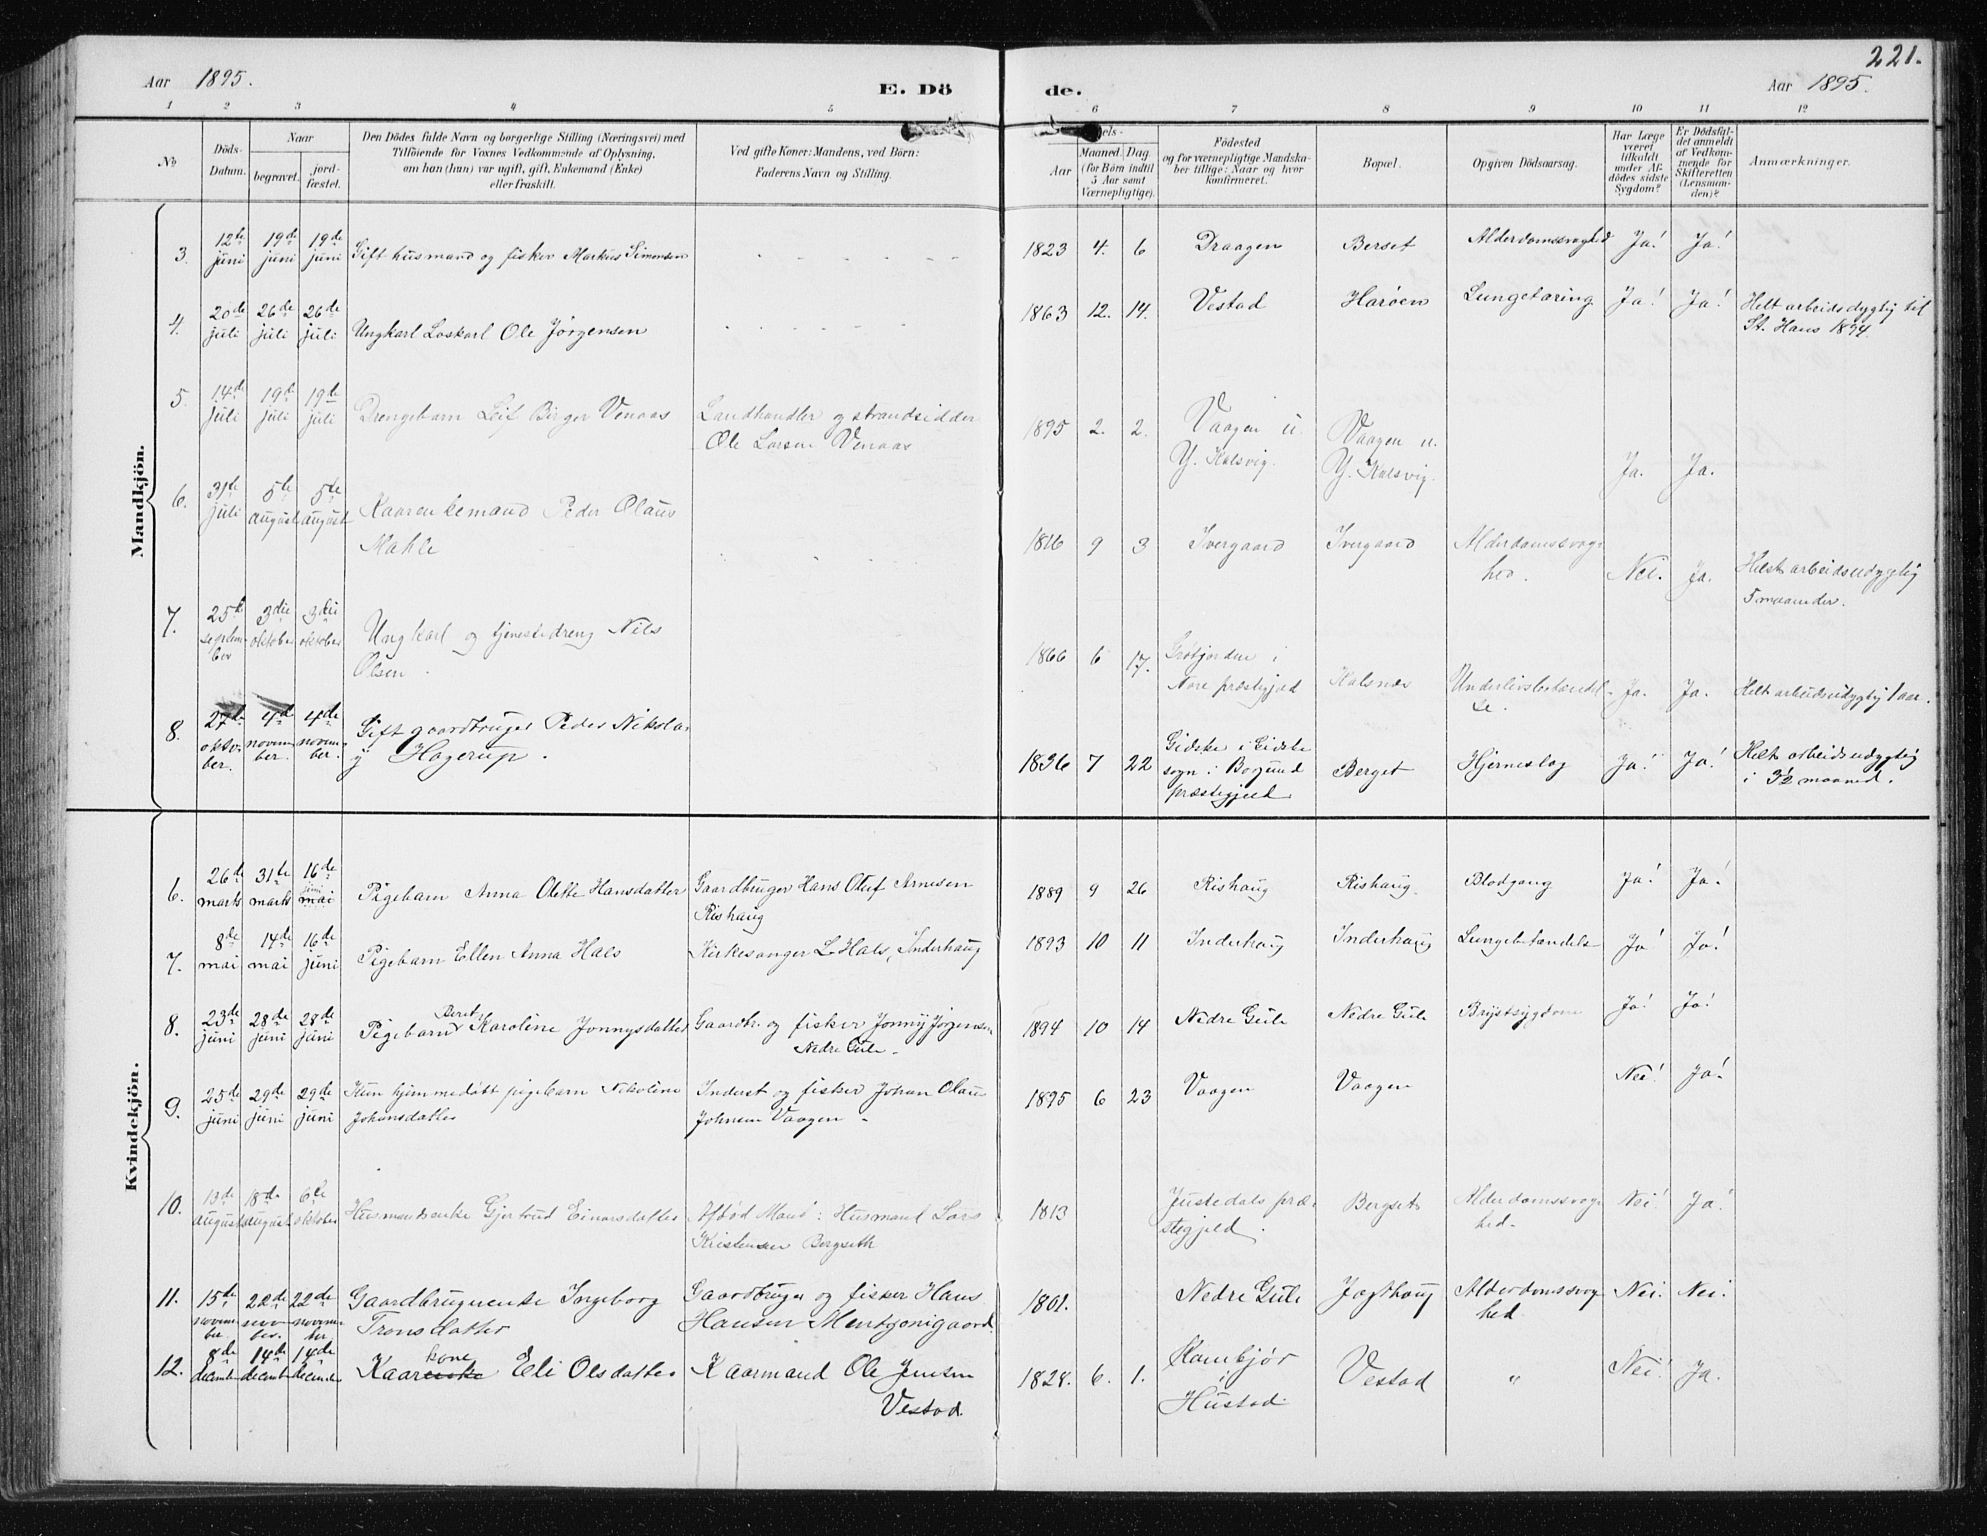 221.
Aar 1895.
E. Dö de.
Aar 1895.
1 2 3 4 5 6 7 8 9 10 11 12
No
Döds-
Datum.
Naar
begravet.
jord-
fæstet.
Den Dödes fulde Navn og borgerlige Stilling (Næringsvei) med
Tilföiende for Voxnes Vedkommende af Oplysning,
om han (hun) var ugift, gift, Enkemand (Enke)
eller fraskilt.
Ved gifte Koner: Mandens, ved Børn:
Faderens Navn og Stilling.
Aar
Maaned. Dag
(for Börn indtil
5 Aar samt
Værnepligtige).
Födested
og for værnepligtige Mandska-
ber tillige: Naar og hvor
konfirmeret.
Bopæl.
Opgiven Dödsaarsag.
Har Læge
været
tilkaldt
under Af-
dödes sidste
Sygdom?
Er Dödsfal-
det anmeldt
af Vedkom-
mende for
Skifteretten
(Lensman-
den)?
Anmærkninger.
Mandkjön.
3. 12te juni 19de juni 19de juni Gift husmand og fisker Markus Simonsen 1823 4. 6 Draagen Berset Alderdomssvaghed Ja! Ja!
4. 20de juli 26de juli 26de juli Ungkarl Loskarl Ole Jørgensen 1863 12. 14. Vestad Harøen Lungetæring Ja! Ja! Helt arbeidsdygtig til
St. Hans 1894.
5. 14de juli 19de juli 19de juli Drengebarn Leif Birger Venaas Landhandler og strandsidder
Ole Larsen Venaas 1895 2. 2. Vaagen u.
Y. Kalsvig. Vaagen u.
Y. Kalsvig. Ja. Ja.
6. 31te juli 5te august 5te august Kaarenkemand Peder Olaus
Mahle 1816 9 3 Ivergaard Ivergaard Alderdomssvag-
hed. Nei. Ja. Helt arbeidsudygtig
5 maaneder.
7. 25de septem-
ber 3die oktober 3die oktober Ungkarl og tjenestedreng Nils
Olsen. 1866 6 17. i
Nore præstegjæld Kalsnæs Underlivsbetændel-
se. Ja. Ja. Helt arbeidsudygtig 1 aar.
8. 27de okto-
ber. 4de novem-
ber. 4de novem-
ber. Gift gaardbruger Peder Nikola-
y Hagerup. 1836 7 22 Gidske i Gidske
sogn i Borgund
præstegjeld Berget Hjerneslag Ja! Ja! Helt arbeidsudygtig
i 3½ maaned.
Kvindekjön.
6. 26de marts 31te marts 16de juni mai Pigebarn Anna Olette Hansdatter Gaardbruger Hans Oluf Arnesen
Rishaug 1889 9 26 Rishaug Rishaug Blodgang Ja! Ja!
7. 8de mai 14de mai 16de juni Pigebarn Ellen Anna Hals Kirkesanger L. Hals, Inderhaug 1893 10 11 Inderhaug Inderhaug Lungebetændelse Ja! Ja!
8. 23de juni 28de juni 28de juni Pigebarn Beret Karoline Jonnysdatter Gaardbr. og fisker Jonny Jørgensen
Nedre Gule 1894 10 14 Nedre Gule Nedre Gule Brystsygdom Ja! Ja!
9. 25de juni 29de juni 29de juni Kun hjemmedøbt pigebarn Nikoline
Johansdatter Inderst og fisker Johan Olaus
Johnsen Vaagen 1895 6 23 Vaagen Vaagen Nei! Ja!
10. 13de august 18de august 6te oktober Husmandsenke Gjertrud Einarsdatter Afdød Mand: Husmand Lars
Kristensen Bergseth 1813 Justedals præ-
stegjeld. Bergset Alderdomssvag-
hed. Nei! Ja!
11. 15de novem-
ber. 22de novem-
ber. 22de novem-
ber Gaardbrugerenke Ingeborg
Tronsdatter Gaardbruger og fisker Hans
Hansen Mentzonigaard. 1801. Nedre Gule Jagthaug Alderdomssvag-
hed Nei. Nei.
12. 8de december 14de december 14de december Kaarenke kone Eli Olsdatter Kaarmand Ole Jensen
Vestad. 1828. 6. 1.
i
Hustad. Vestad " Nei! Ja.